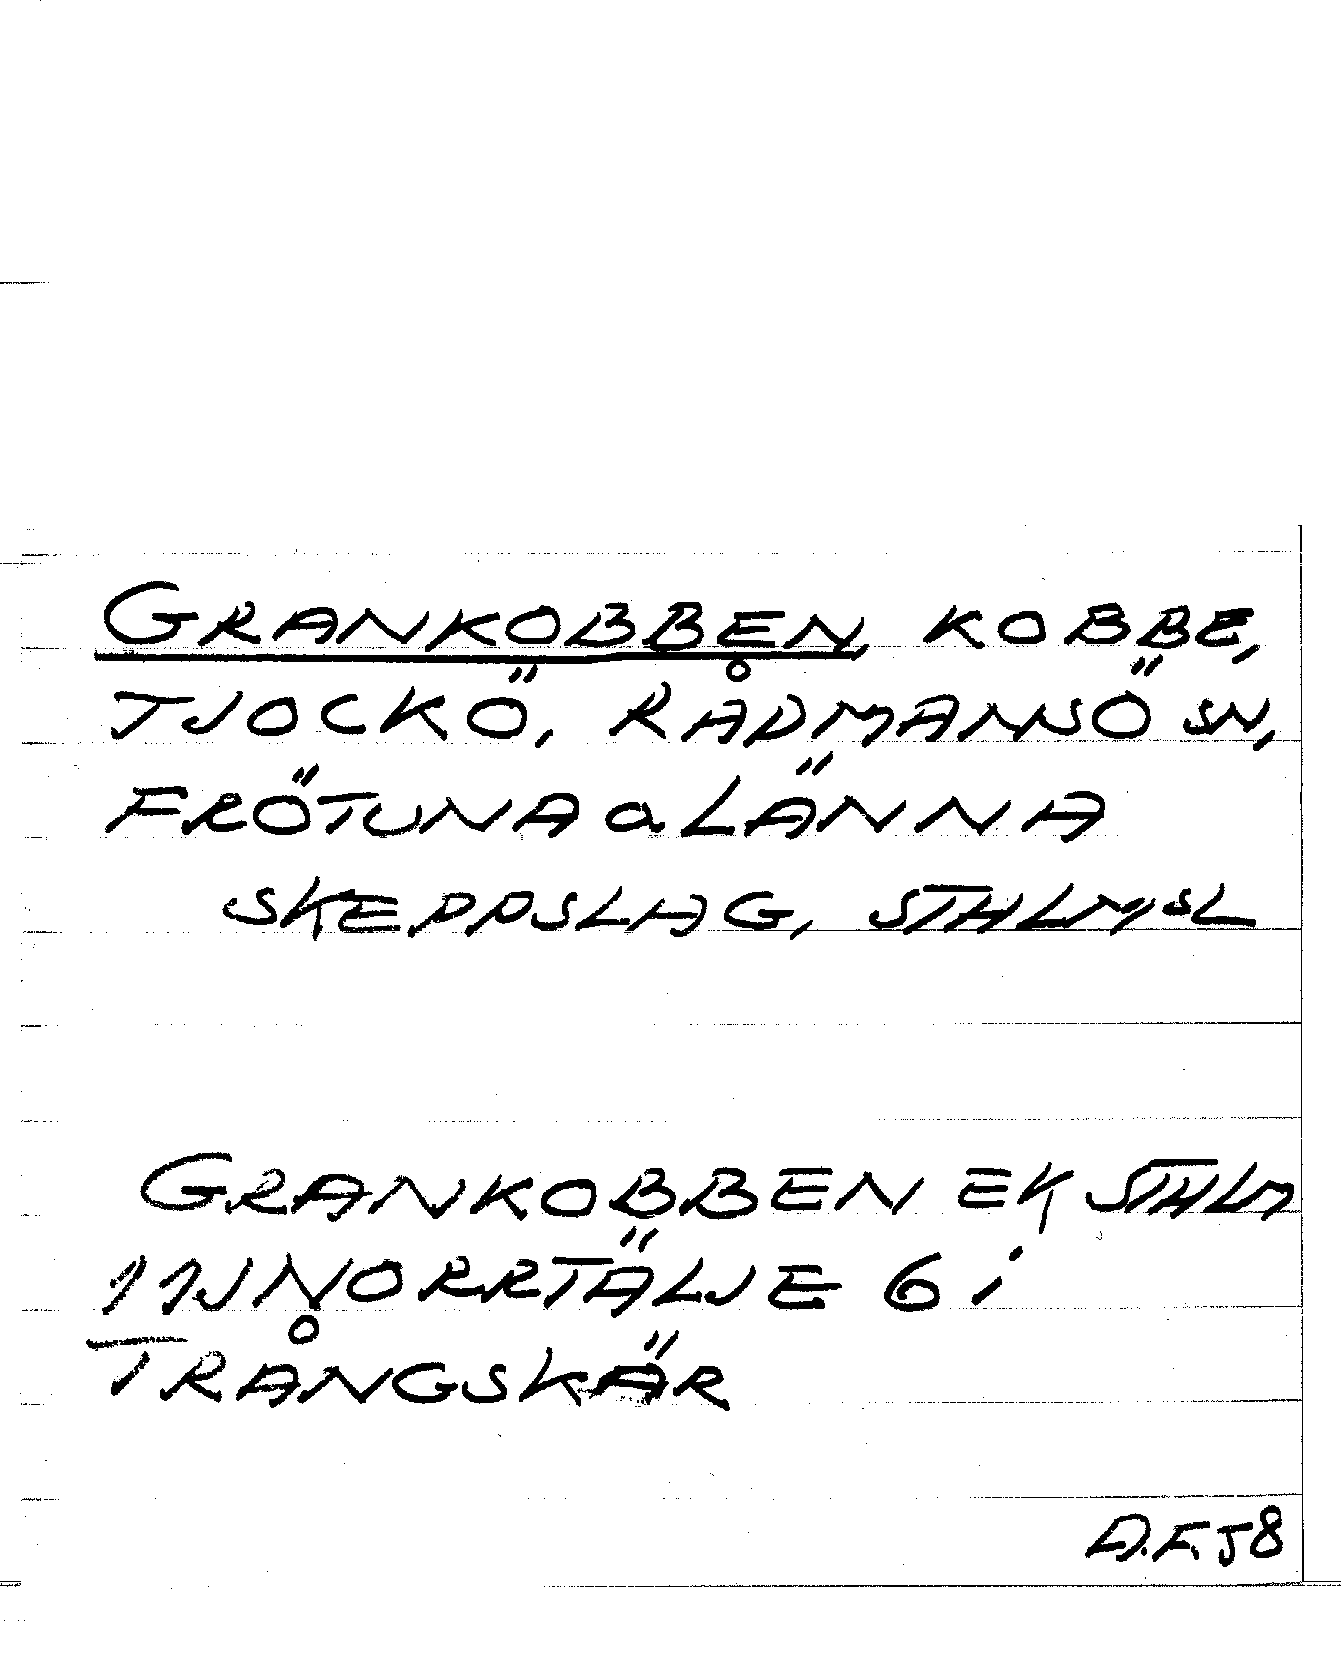 GRANKOBBEN, KOBBE,
TJOCKÖ, RÅDMANSÖ SN,
FRÖTUNA a LÄNNA
SKEPPSLAG, STHLMSL
GRANKOBBEN EK STHLM
11J NORRTÄLJE 6 i
TRÅNGSKÄR
A.F. 58